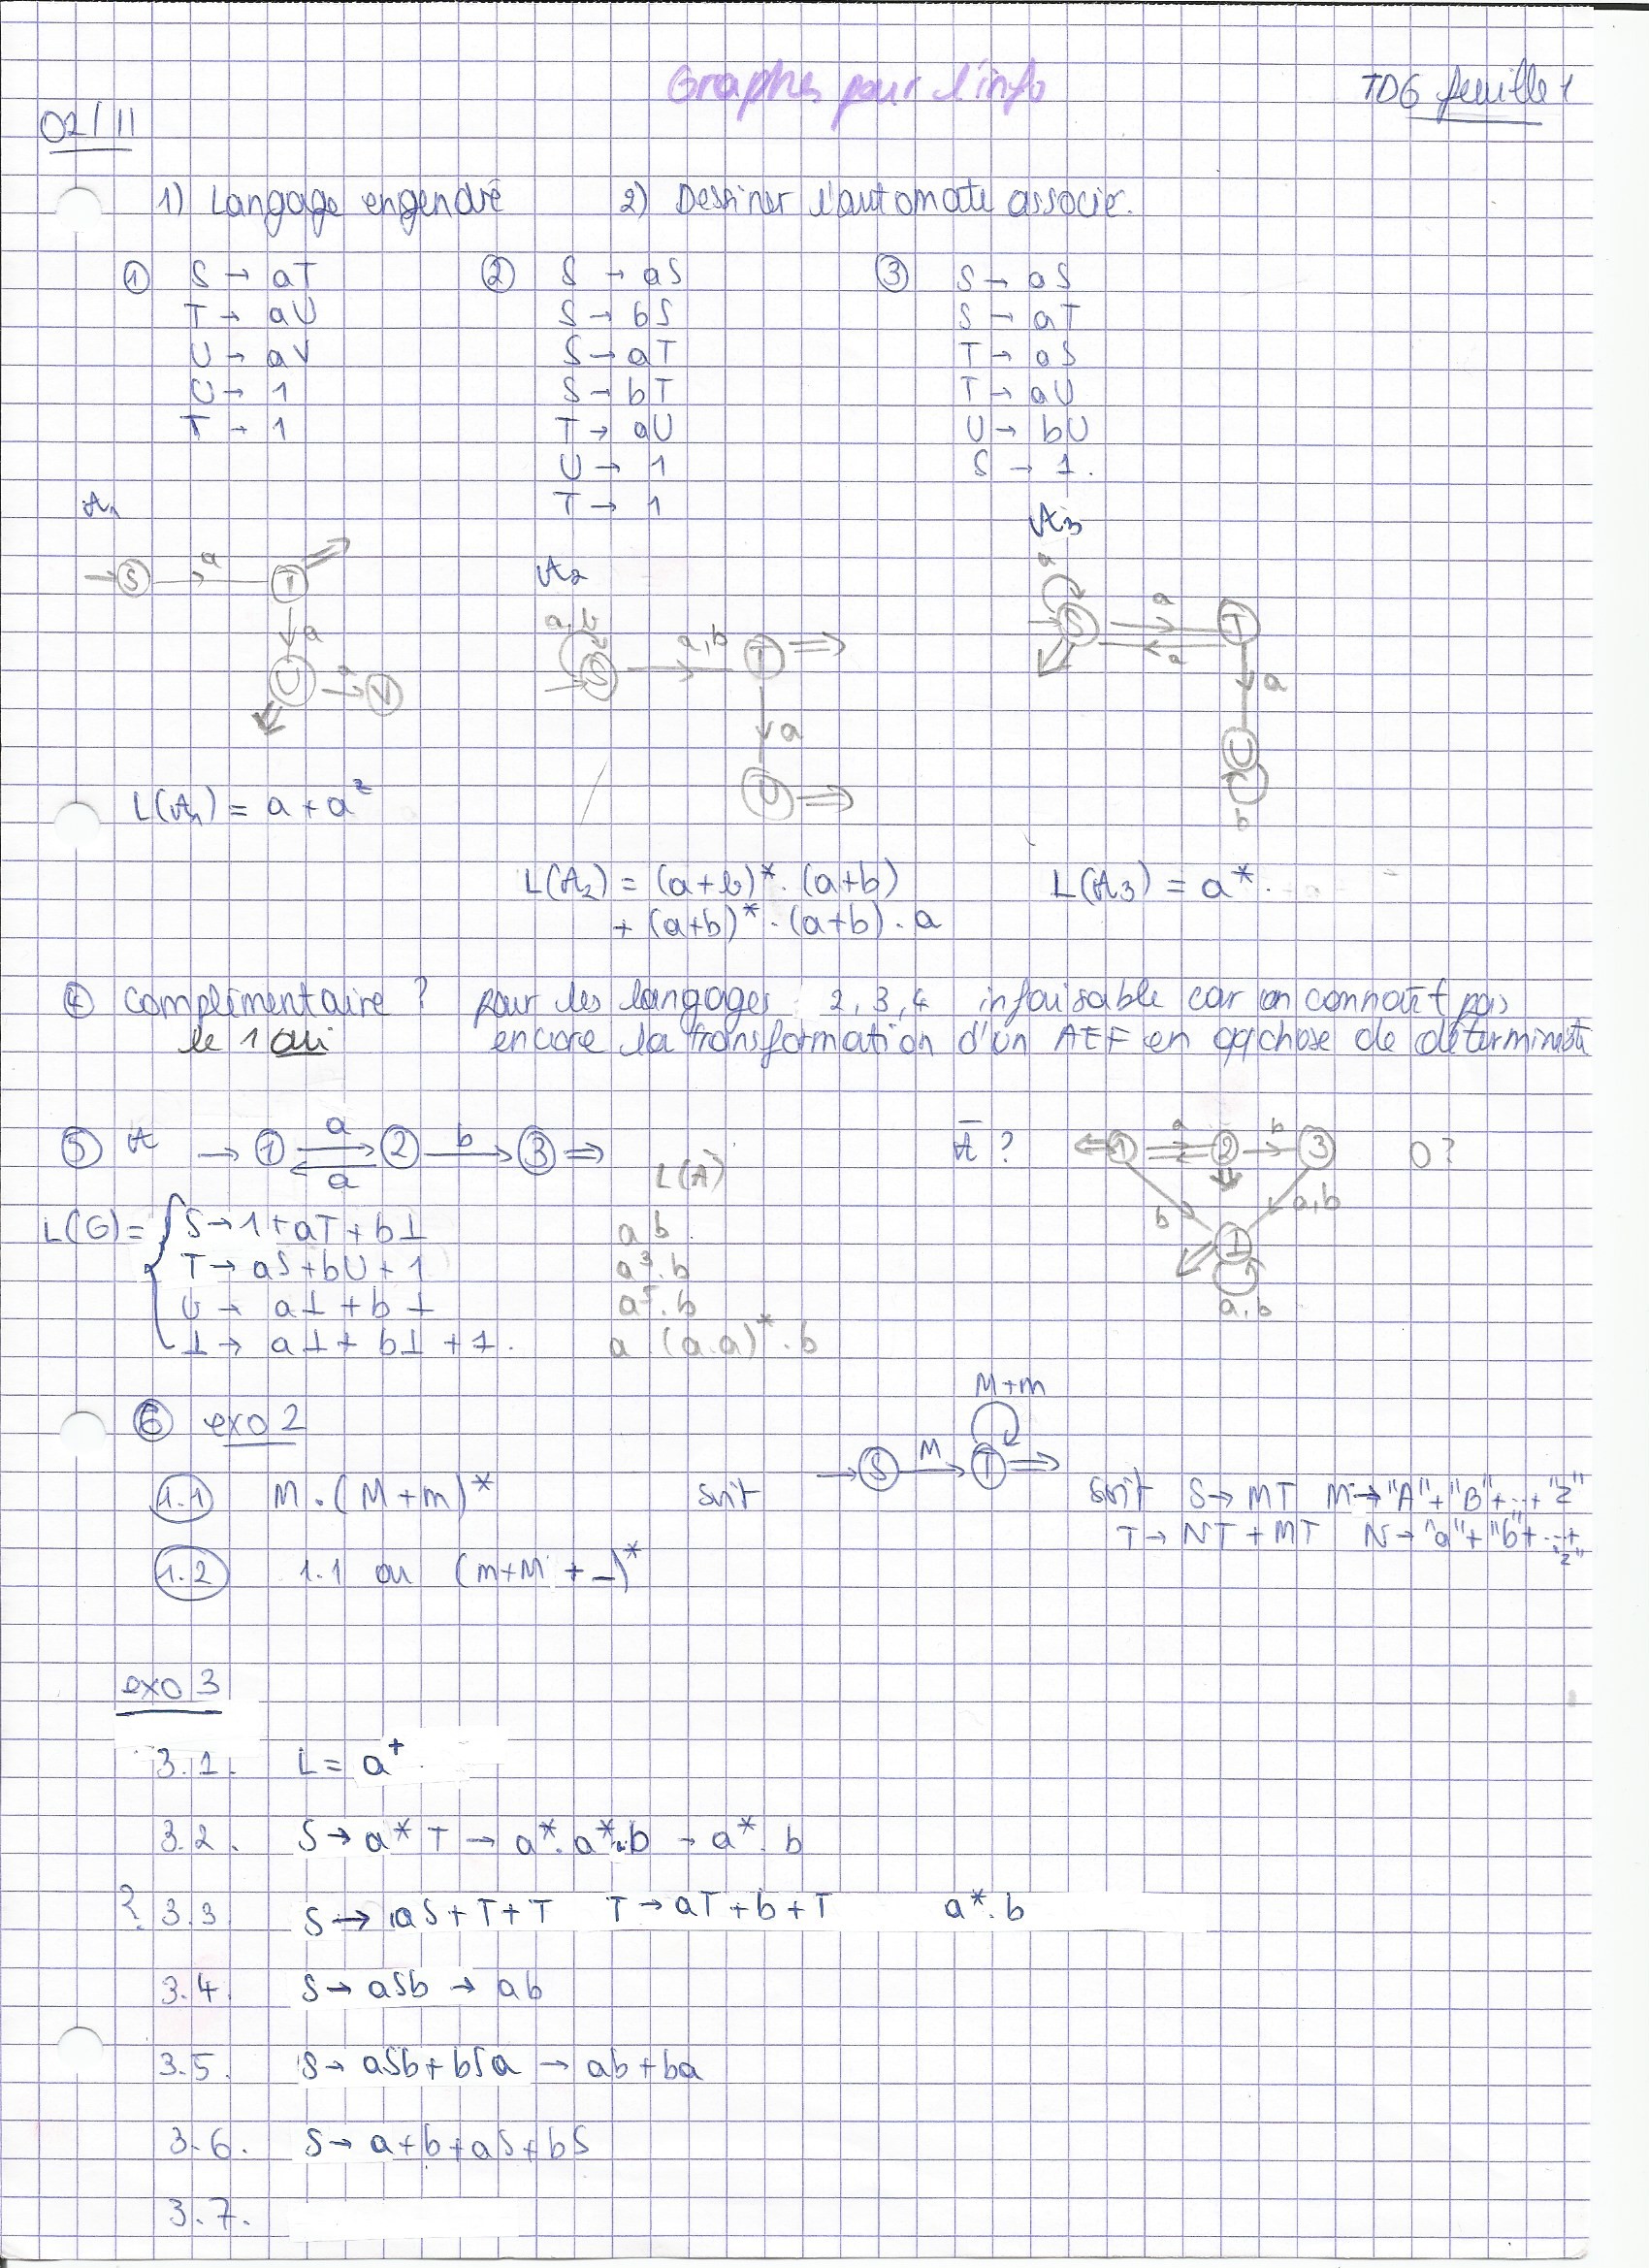 Graphes pour l'info
TD6 feuille 1
02/11
1) Langage engendré 2) Dessiner l'automate associé.
① S → aT
T → aU
U → aV
U → 1
T → 1
② S → aS
S → bS
S → aT
S → bT
T → aU
U → 1
T → 1
③ S → aS
S → aT
T → aS
T → aU
U → bU
S → 1.
A1
S a T
a
U a V
L(A1) = a + a²
A2
a, b
S a, b T
a
U
L(A2) = (a+b)* . (a+b)
+ (a+b)* . (a+b) . a
A3
a
S a T
a
a
U
b
L(A3) = a* .
④ Complémentaire ? pour les langages 2, 3, 4 infaisable car on connaît pas
le 1 oui encore la transformation d'un AEF en qqchose de déterministe
⑤ A → ① a ② b ③ ⇒
a
L(A)
Ā ? ① a ② b ③ 0 ?
b a, b
⊥
a, b
L(G) = { S → 1 + aT + b⊥
T → aS + bU + 1
U → a⊥ + b⊥
⊥ → a⊥ + b⊥ + 1.
a b
a³ . b
a⁵ . b
a . (a.a)* . b
⑥ exo 2
M+m
→ S M T ⇒
1.1 M . (M+m)* soit
soit S → MT M → "A" + "B" + ... + "Z"
T → NT + MT N → "a" + "b" + ... +
"z"
1.2 1.1 ou (m+M + _)*
exo 3
3.1. L = a⁺
3.2. S → a* T → a* . a* . b → a* . b
? 3.3 S → aS + T + T T → aT + b + T a* . b
3.4. S → aSb → ab
3.5. S → aSb + bSa → ab + ba
3.6. S → a + b + aS + bS
3.7.